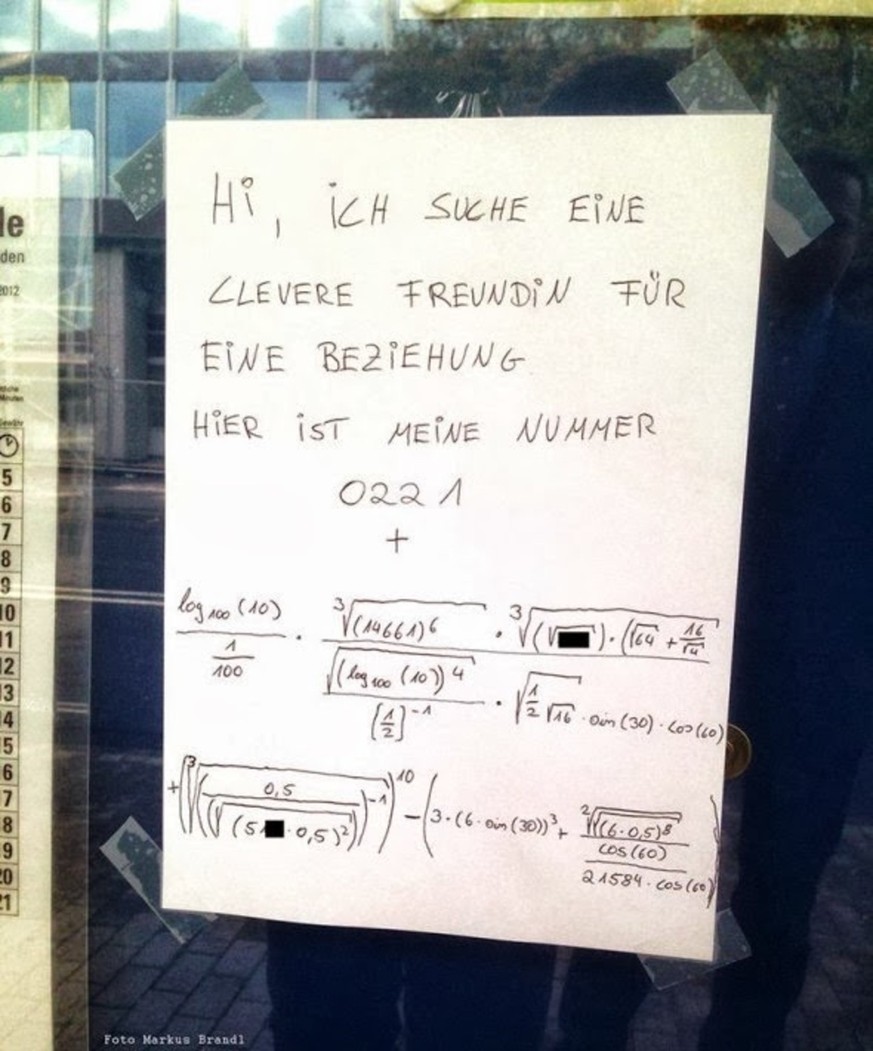 le
den
2012
5
6
7
8
9
10
11
12
13
14
15
16
17
18
19
20
21
Hi, iCH SUCHE EiNE
CLEVERE FREUNDiN FÜR
EiNE BEZiEHUNG
HiER iST MEiNE NUMMER
0221
+
log₁₀₀(10) / (1/100) · ∛(14661)⁶ · ∛(√ ) · (√64 + 16/√4)
√(log₁₀₀(10))⁴ / [1/2]⁻¹ · √(1/2 √16) · sin(30) · cos(60)
+ (∛((0,5 / (√(5 · 0,5)²))⁻¹))¹⁰ − (3 · (6 · sin(30))³ + ²√(√(6 · 0,5)⁸) / cos(60) / 21584 · cos(60))
Foto Markus Brandl